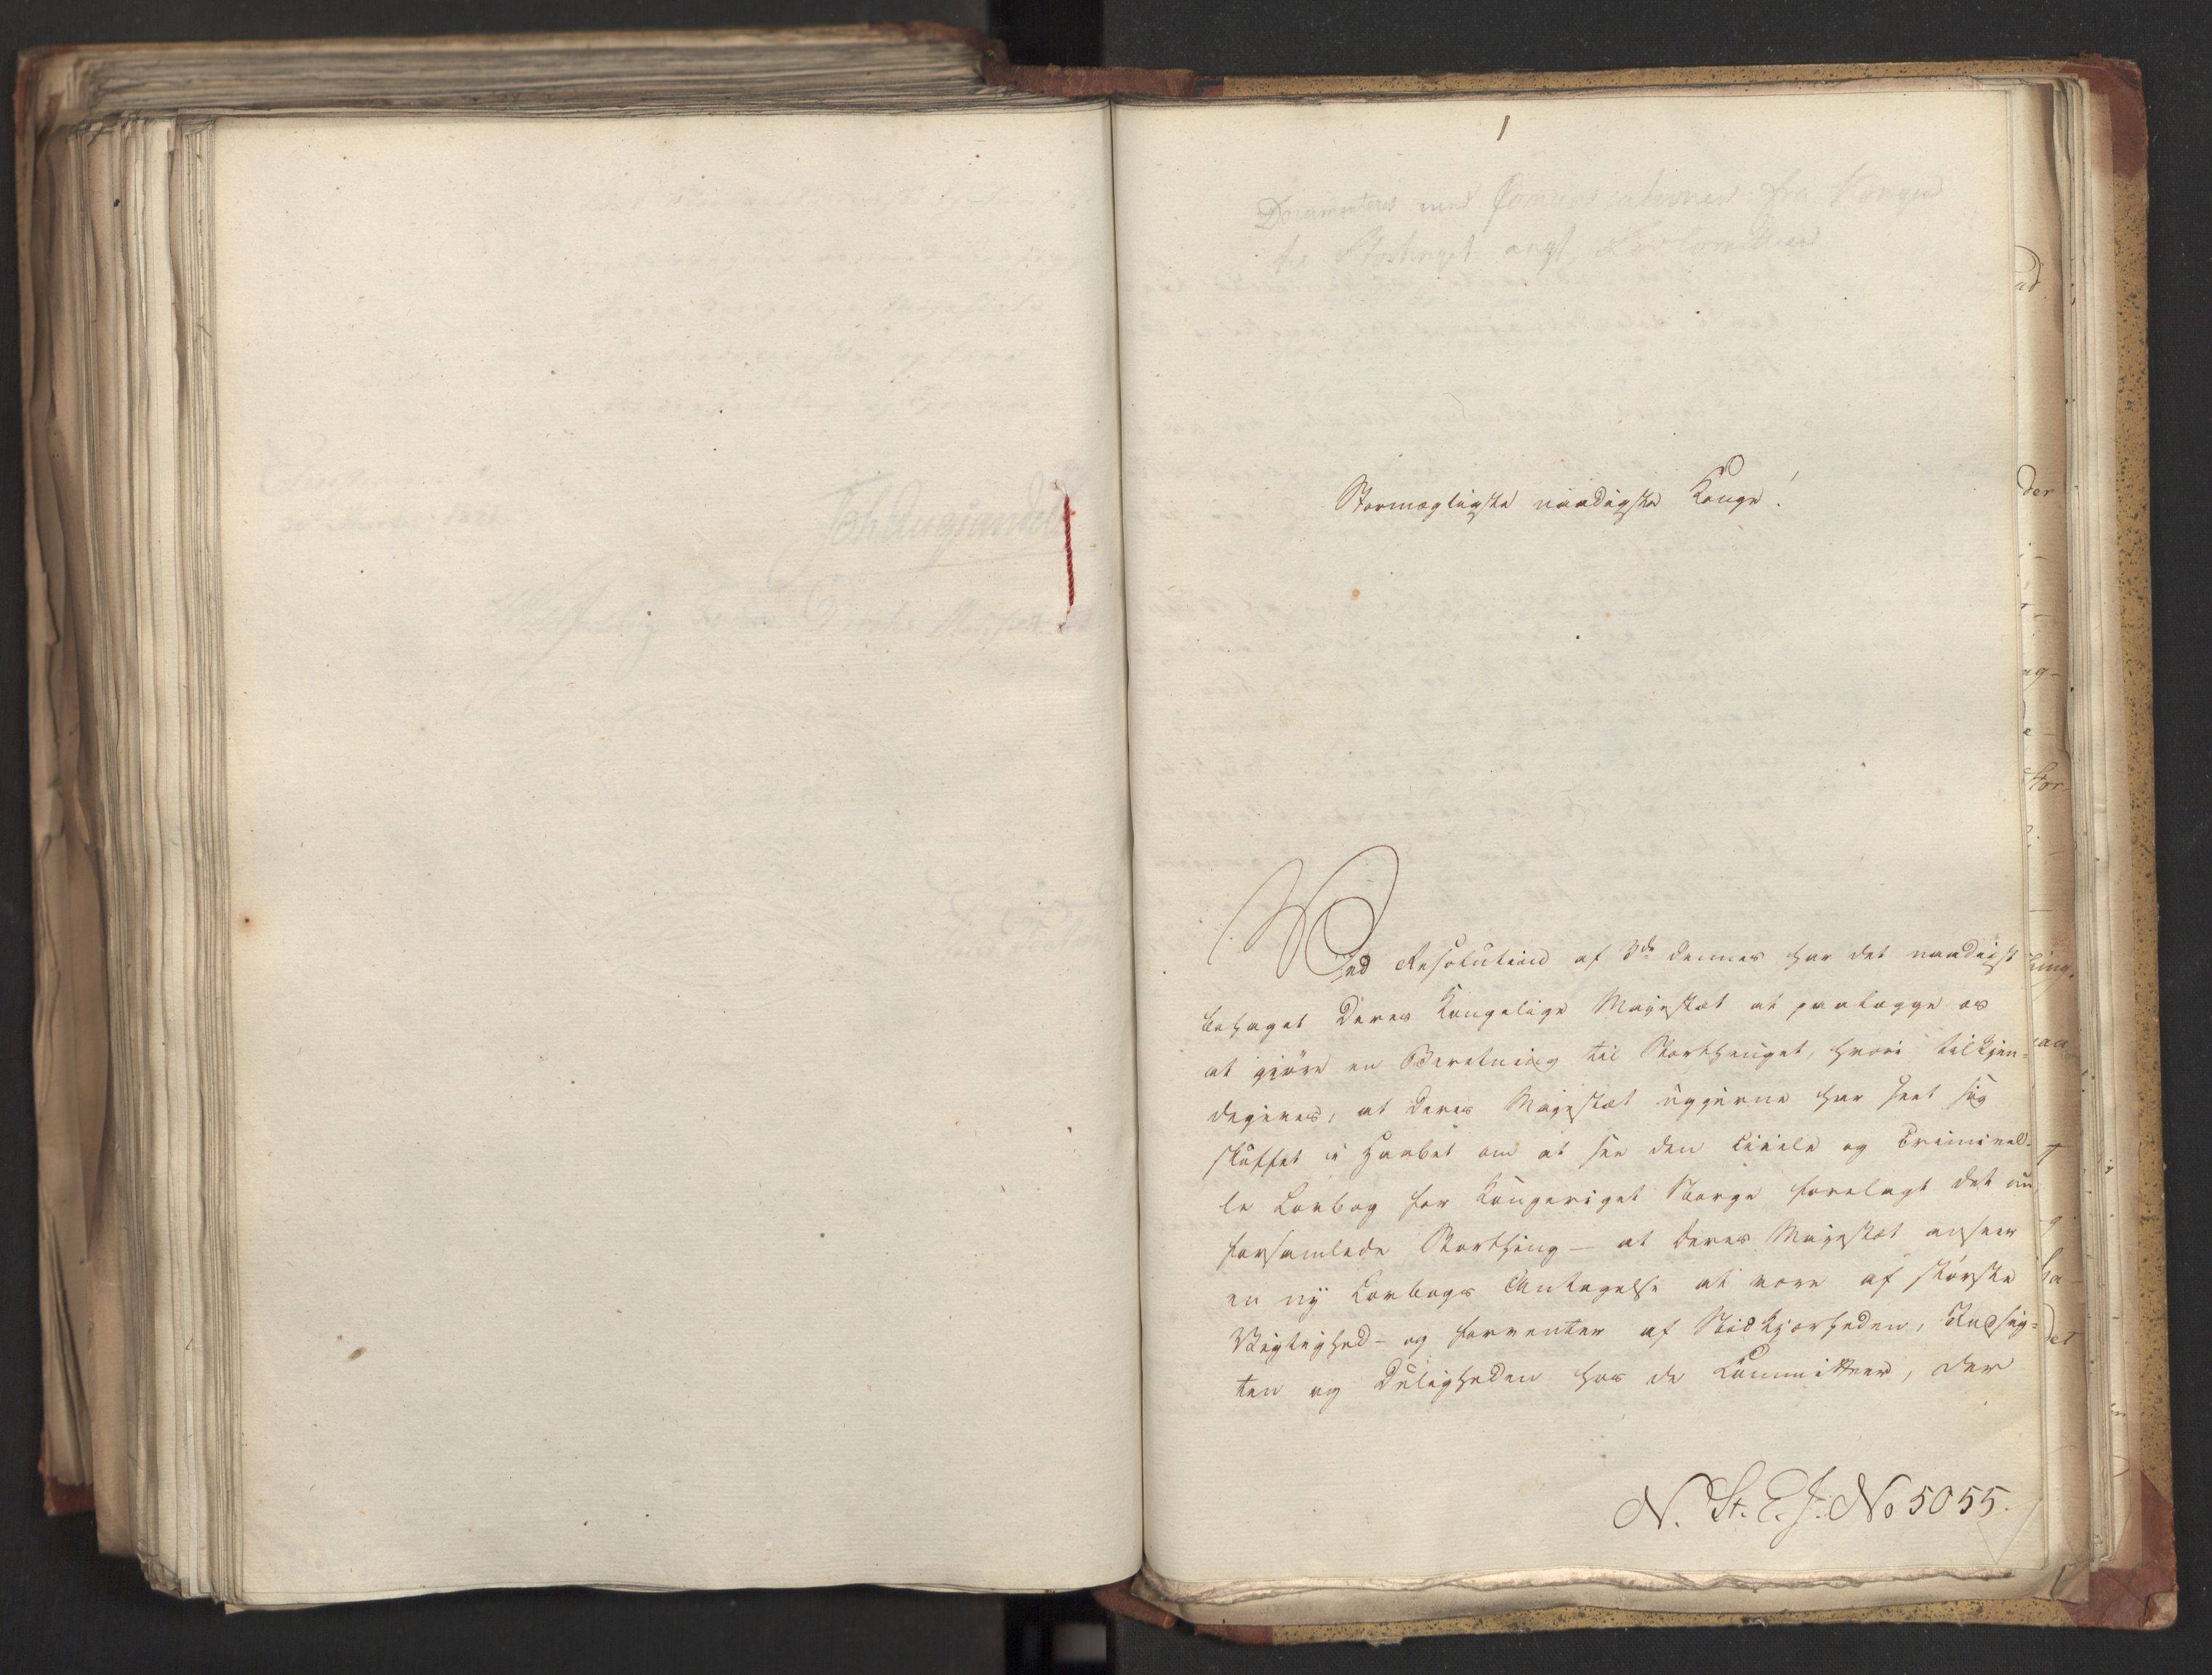 1
Documenteres med Communicationen fra Kongen
til Storthinget angd Lovcomitteen
Stormægtigste naadigste Konge!
Ved Resolution af 3de dennes har det naadigst
behaget Deres Kongelige Majestæt at paalægge os
at gjöre en Beretning til Storthinget, hvori tilkjen-
degives, at Deres Majestæt ugjerne har seet sig
skuffet i Haabet om at see den Civile og Criminel-
le Lovbog for Kongeriget Norge forelagt det nu
forsamlede Storthing – at Deres Majestæt anseer
en ny Lovbogs Antagelse at være af störste
Vigtighed – og forventer af Nidkjærheden, Indsig-
ten og Dueligheden hos de Committeer, der
N. St. E. J. No 5055.